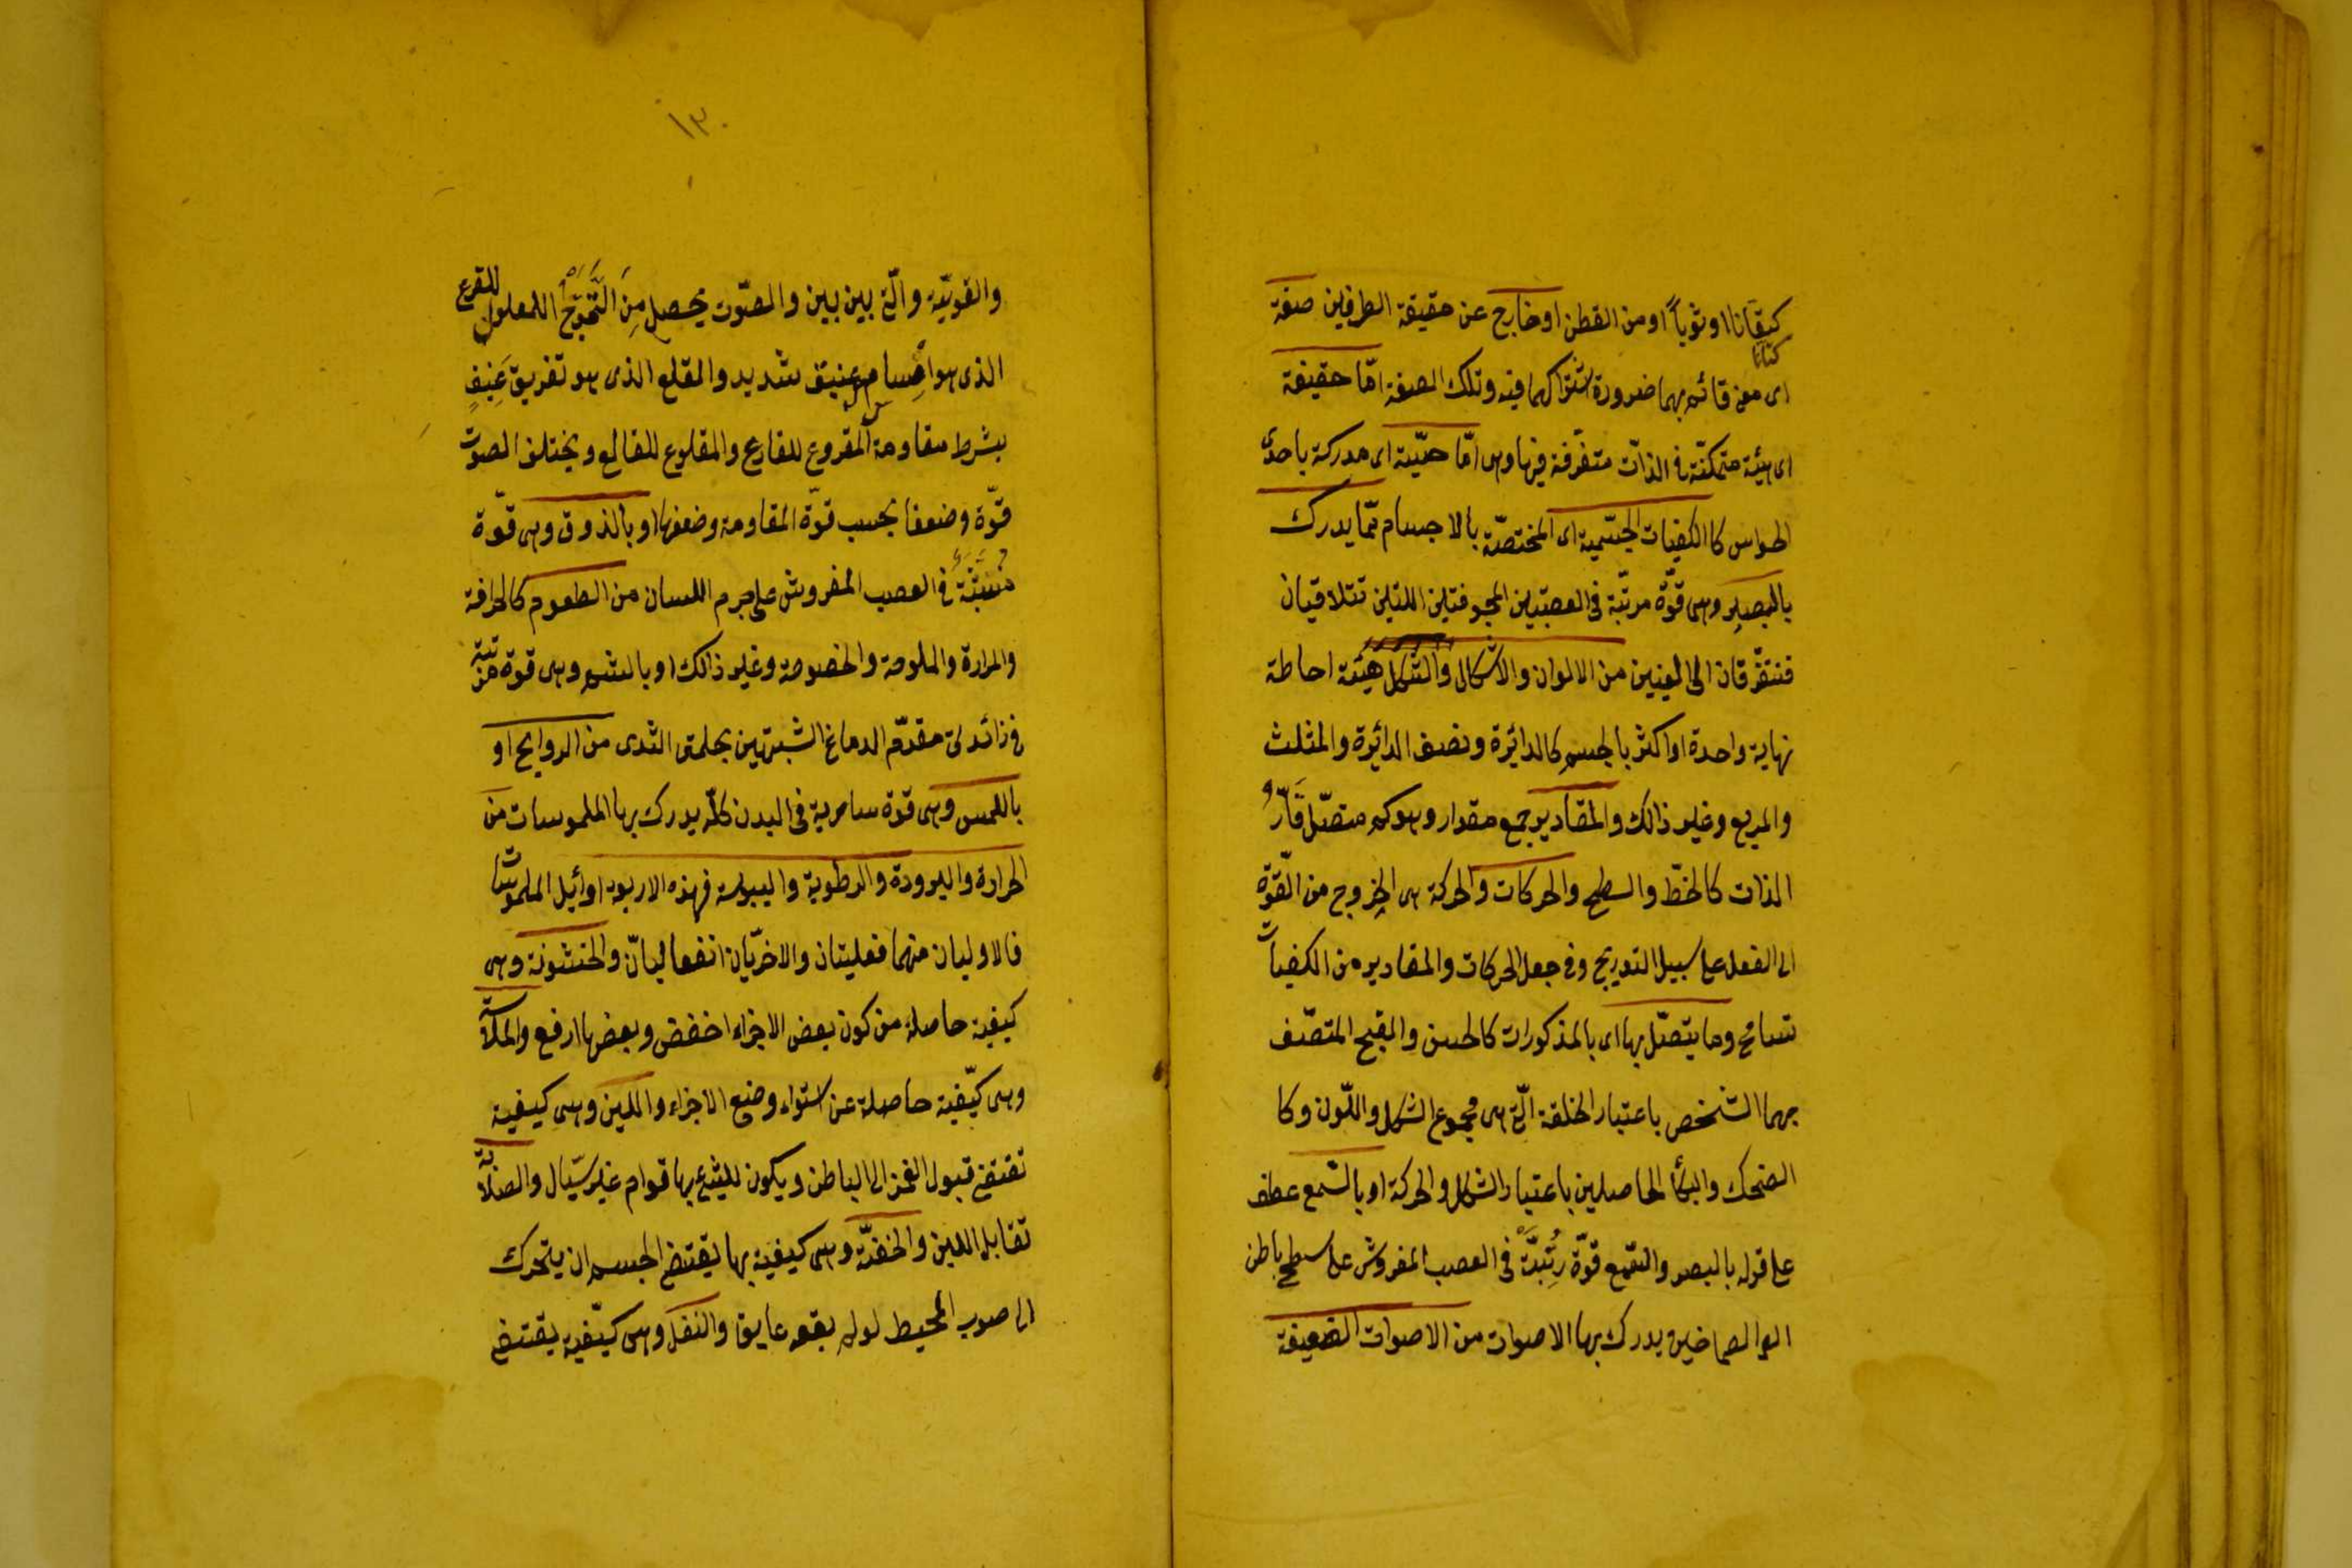 كيقانا اوثوباً او من القطن اوخارج عن حقيقة الطرفين صفة
كتانا
اى معنى قائم بهما ضرورة اشتراكهما فيه وتلك الصفة امّا حقيقة
اى هيئة متمكنّة فى الذات متقرّفة فيها وهى امّا حسّية اى مدركة باحدى
الحواس كا الكيفيات الجسّمية اى المختصّة بالاجسام ممّا يدرك
بالبصر وهى قوّة مرتبّة فى العصبتين المجوفتين اللتين تتلاقيان
فتتفرّقان الى العينين من الالوان والاشكال والشكل هيئة احاطة
نهاية واحدة او اكثر بالجسم كالدائرة ونصف الدائرة والمثلث
والمربع وغير ذالك والمقادير جمع مقدار وهو كم متصّل قارُّ
الذات كالخطّ والسطح والحركات والحركة هى الخروج من القوّة
الى الفعل على سبيل التدريج وفى جعل الحركات والمقادير من الكفيات
تسامح وما يتصّل بها اى بالمذكورات كالحسن والقبح المتصّف
بهما الشخص باعتبار الخلقة الّتى هى مجموع الشكل واللّون وكا
الضحك والبكأ الحاصلين باعتبار الشكل والحركة او بالسّمع عطف
على قوله بالبصر والسّمع قوّة رُتِّبَتْ فى العصب المفروش على سطح باطن
الصماخين يدرك بها الاصوات من الاصوات الضعيفة
١٣٠
والقويّة والّتى بين بين والصّوت يحصل مِنَ التَّمَوُّجْ المعلول للقرع
الذى هو امساس عنيف شديد والقلع الذى هو تفريق عَنِيفٍ
بشرط مقاومة المقروع للقارع والمقلوع للقالع ويختلف الصوت
قوّة وضعفا بحسب قوّة المقاومة وضعفها او بالذوق وهى قوّة
مُنبَثَّةٌ فى العصب المفروش على جرم اللسان من الطعوم كالحرافة
والمرارة والملوحة والحموضة وغير ذالك او بالشم وهى قوة مرتبة
فى زائدتى مقدّم الدماغ الشبيهتين بحلمتى الثدى من الروايح او
باللمس وهى قوة سارية فى البدن كلّه يدرك بها الملموسات من
الحرارة والبرودة والرطوبة واليبوسة فهذه الاربعة اوائل الملموسات
فالاوليان منهما فعليتان والاخرّيان انفعاليّان والخشونة وهى
كيفية حاصلة من كون بعض الاجزاء اخفض وبعضها ارفع والملاسة
وهى كيّفية حاصلة عن استواء وضع الاجزاء والّلين وهى كيفية
تقتضى قبول الغمز الى الباطن ويكون للشئ بها قوام غير سيّال والصلابة
تقابل اللين والخفّة وهى كيفية بها يقتضى الجسم ان يتحرك
الى صوب المحيط لو لم يعقه عايق والثقل وهى كيّفية يقتضى